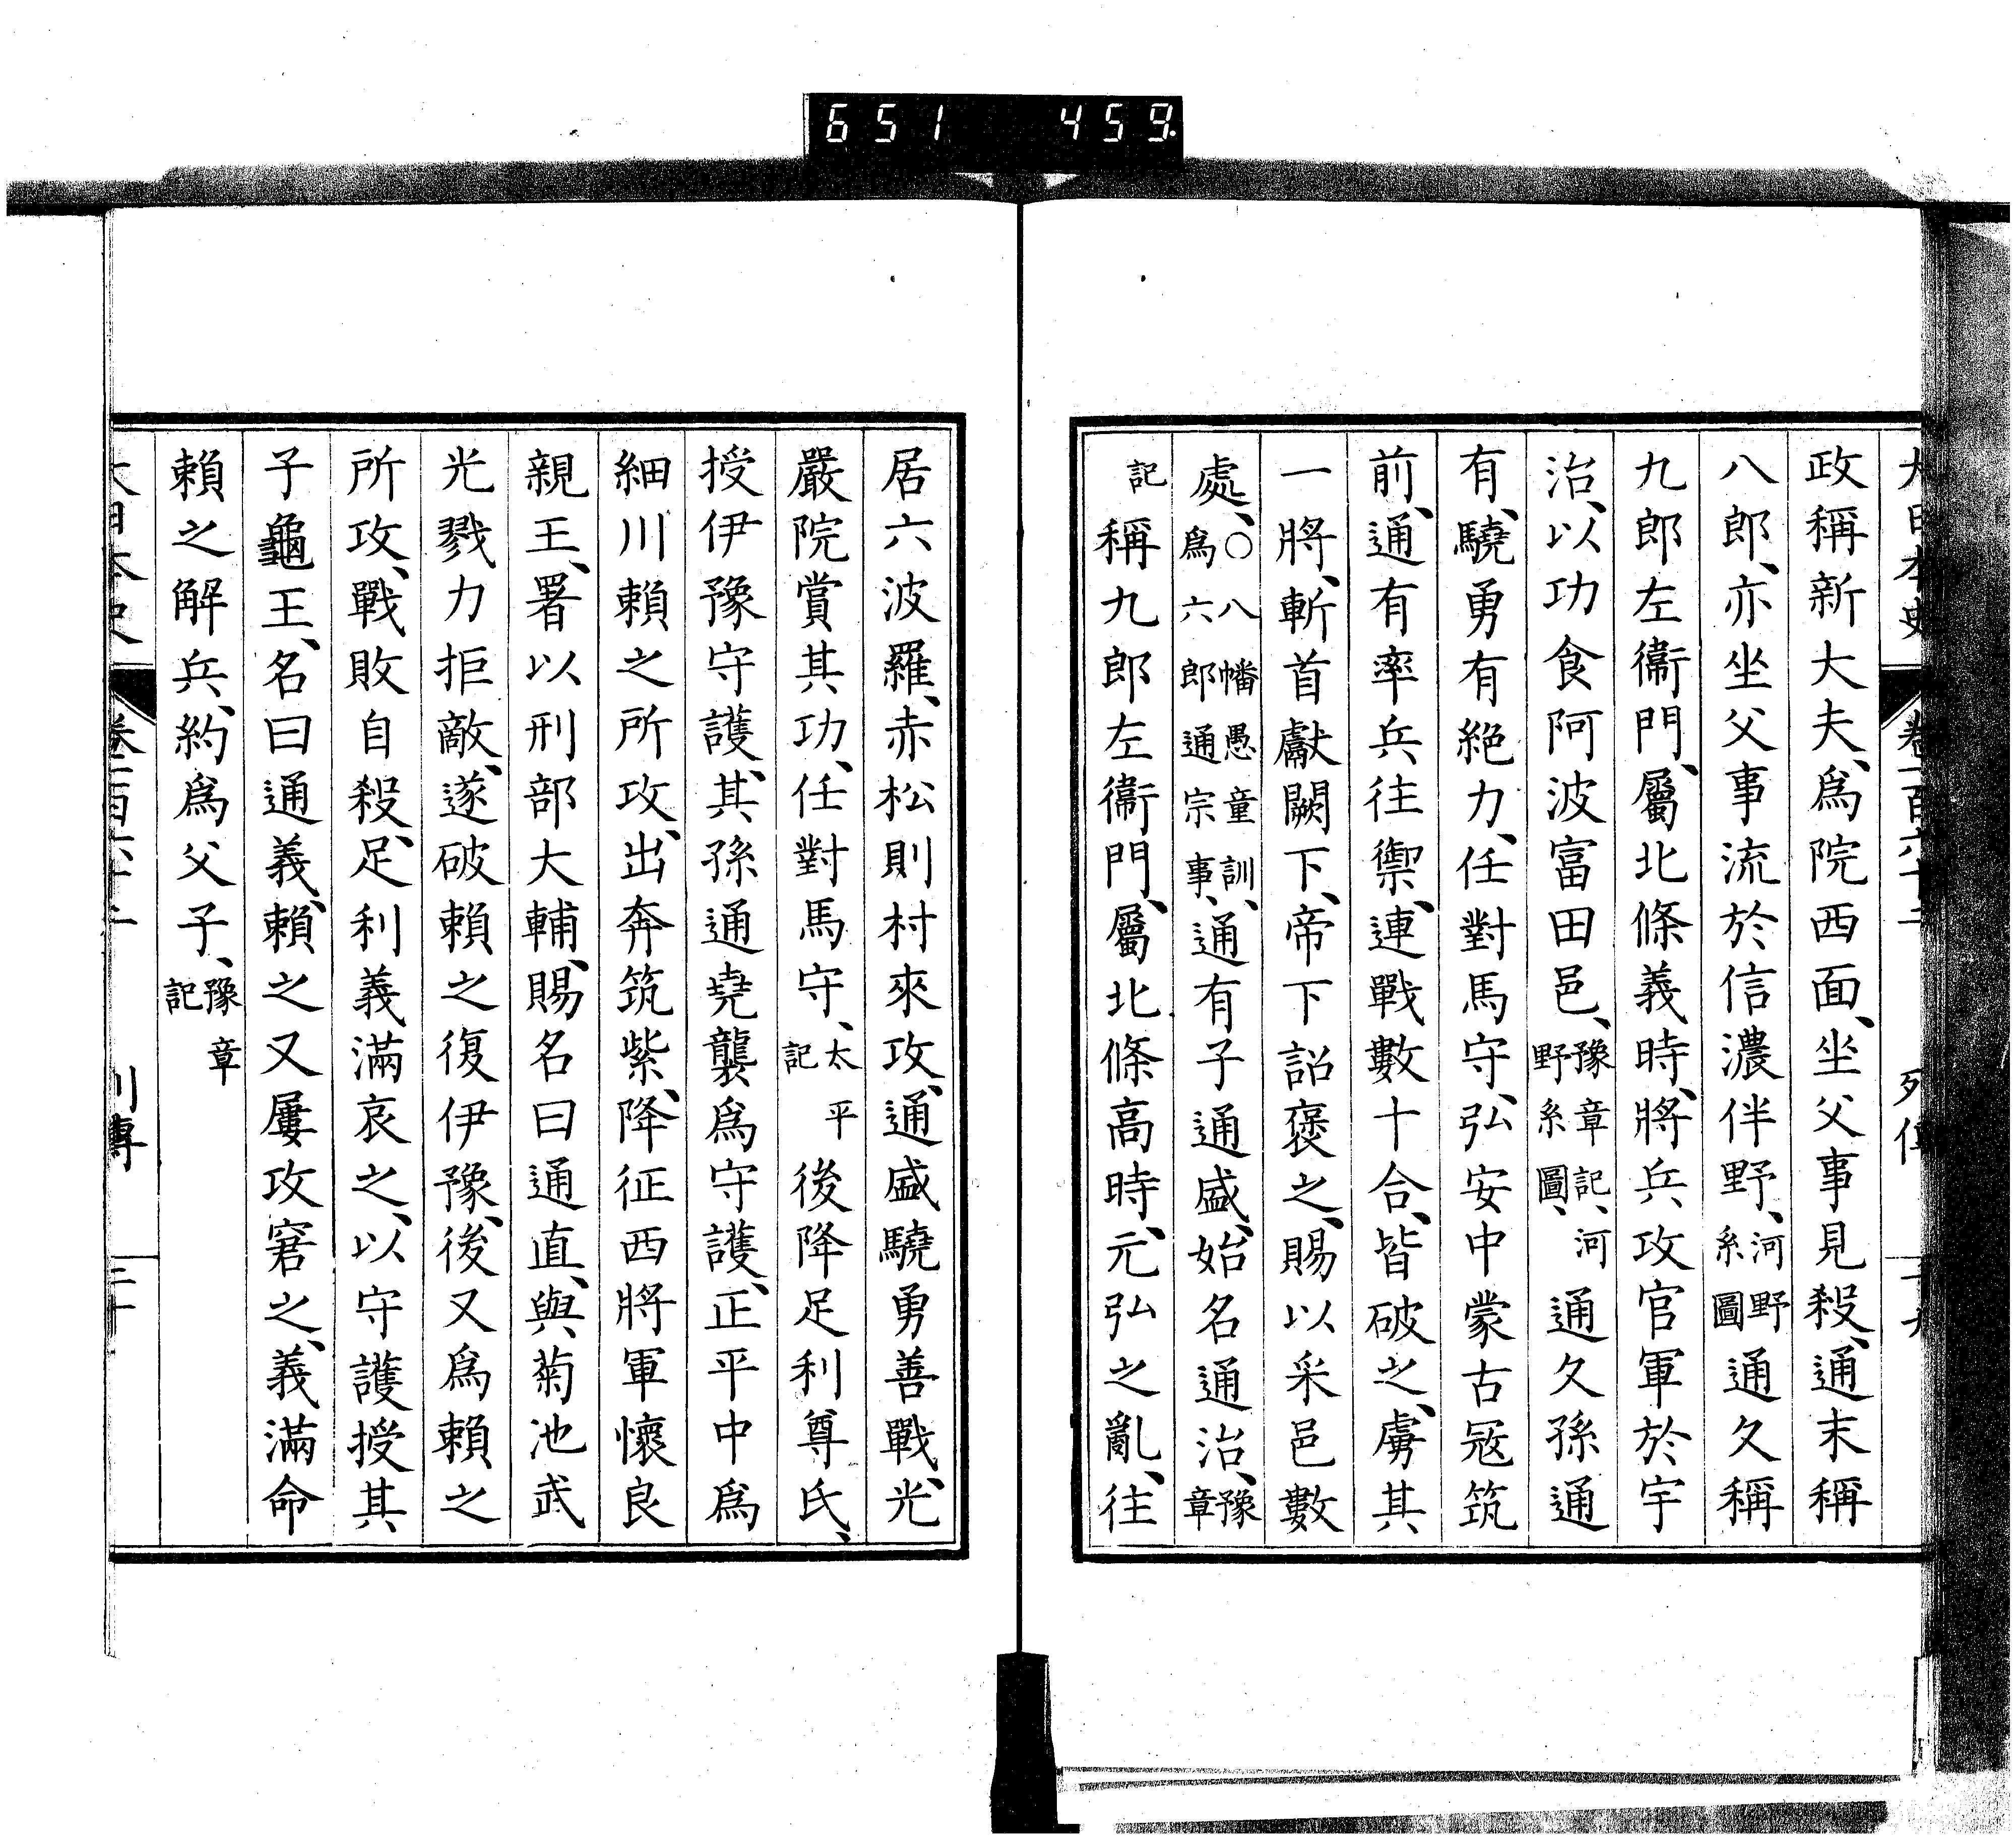 651 459.
政稱新大夫、爲院西面、坐父事見殺、通末稱
八郎、亦坐父事流於信濃伴野、河野系圖通久稱
九郎左衞門、屬北條義時、將兵攻官軍於宇
治、以功食阿波富田邑、豫章記、河野系圖、通久孫通
有、驍勇有絶力、任對馬守、弘安中蒙古冦筑
前、通有率兵往禦、連戰數十合、皆破之、虜其
一將、斬首獻闕下、帝下詔褒之、賜以采邑數
處、○八幡愚童訓、爲六郎通宗事、通有子通盛、始名通治、豫章
記稱九郎左衞門、屬北條高時、元弘之亂、往
居六波羅、赤松則村來攻、通盛驍勇善戰、光
嚴院賞其功、任對馬守、太平記後降足利尊氏、
授伊豫守護、其孫通堯襲爲守護、正平中爲
細川賴之所攻、出奔筑紫、降征西將軍懷良
親王、署以刑部大輔、賜名曰通直、與菊池武
光戮力拒敵、遂破賴之復伊豫、後又爲賴之
所攻、戰敗自殺、足利義滿哀之、以守護授其
子龜王、名曰通義、賴之又屢攻窘之、義滿命
賴之解兵、約爲父子、豫章記